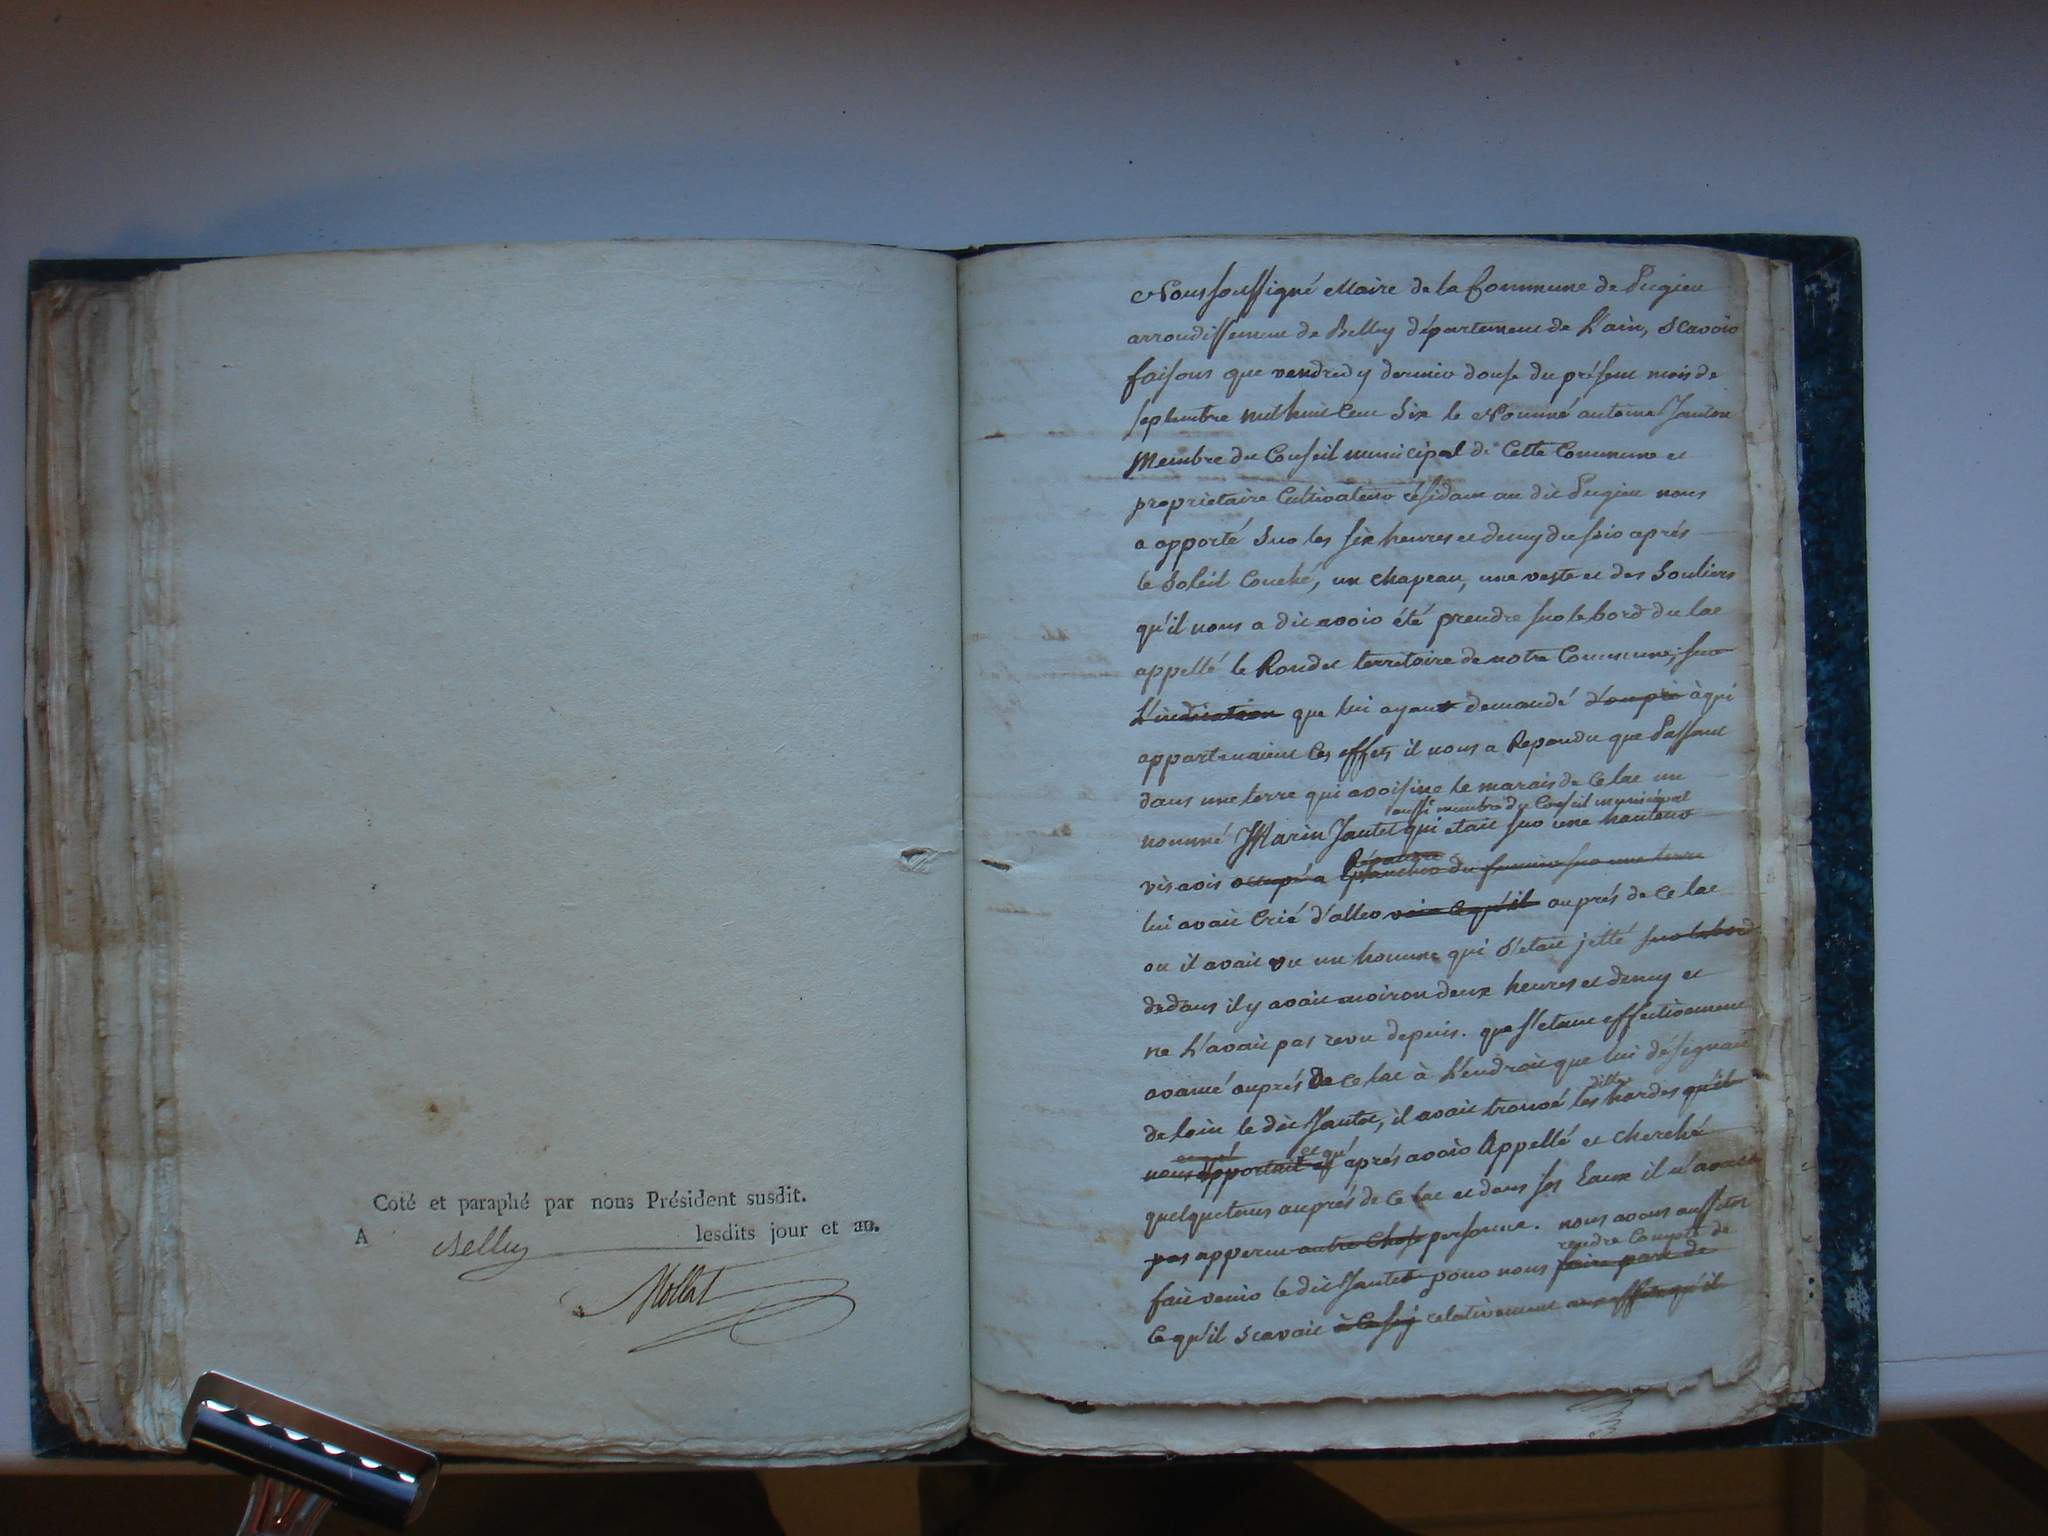 Coté et paraphé par nous Président susdit.
A Belley lesdits jour et an.
Mollet
Nous soussigné Maire de la Commune de Pugieu
arrondissement de Belley département de L'ain, scavoir
faisons que vendredy dernier douse du présent mois de
septembre mil huit Cent Six le Nommé antoine Jantin
Membre du Conseil municipal de Cette Commune et
proprietaire Cultivateur résidant au dit Pugieu nous
a apporté sur les six heures et demy du soir aprés
le Soleil Couché, un chapeau, une veste et des Souliers
qu'il nous a dit avoir été prendre sur le bord du lac
appellé le Rondet territoire de notre Commune, sur
L'indication que lui ayant demandé d'ou pri à qui
appartenaient Ces effets il nous a Repondu que Passant
dans une terre qui avoisine le marais de Ce lac un
aussi membre du Conseil municipal
nommé Marin Jantet qui était sur une hauteur
Répandre
vis avis occupé a du fumier sur une terre
lui avait Crié d'aller voir Ce qu'il auprés de Ce lac
ou il avait vu un homme qui S'etait jetté sur le bord
dedans il y avait environ deux heures et demy et
ne L'avait pas revu depuis. que s'etant effectivement
avancé auprés de Ce lac à L'endroit que lui désignait
dittes
de loin le dit Jantet, il avait trouvé les hardes qu'il
et qu'
nous apportait et aprés avoir Appellé et cherché
quelque tems auprés de Ce lac et dans ses Eaux il n'avait
pas apperçu autre Chose personne. nous avons aussitot
rendre Compte de
fait venir le dit Jantet pour nous faire part de
Ce qu'il Scavait relativement aux effets qu'il